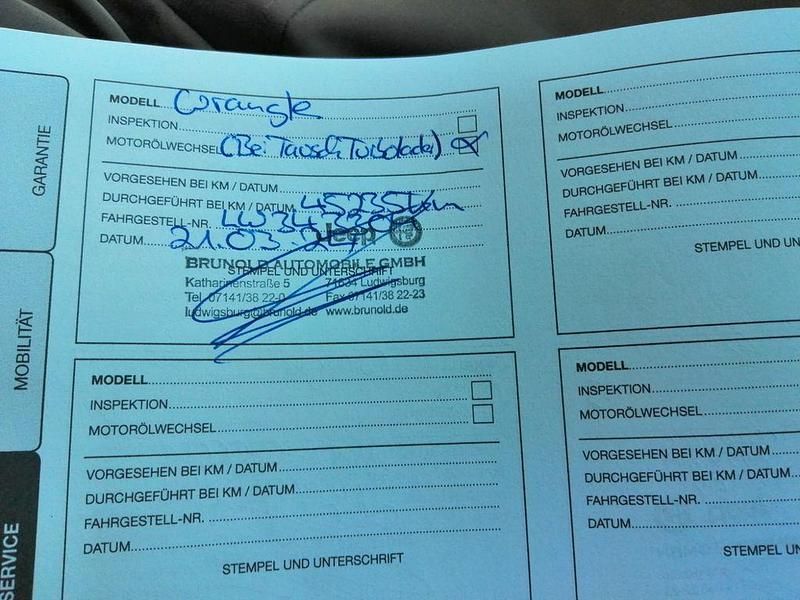 GARANTIE
MOBILITÄT
SERVICE
MODELL Wrangle
INSPEKTION
MOTORÖLWECHSEL (Bei Tausch Turbolader)
VORGESEHEN BEI KM / DATUM
DURCHGEFÜHRT BEI KM / DATUM 45235km
FAHRGESTELL-NR.
DATUM 21.03.
Jeep
BRUNOLD AUTOMOBILE GMBH
STEMPEL UND UNTERSCHRIFT
Katharinenstraße 5 71634 Ludwigsburg
Tel. 07141/38 22-0 Fax 07141/38 22-23
ludwigsburg@brunold.de www.brunold.de
MODELL
INSPEKTION
MOTORÖLWECHSEL
VORGESEHEN BEI KM / DATUM
DURCHGEFÜHRT BEI KM / DATUM
FAHRGESTELL-NR.
DATUM
STEMPEL UND UNTERSCHRIFT
MODELL
INSPEKTION
MOTORÖLWECHSEL
VORGESEHEN BEI KM / DATUM
DURCHGEFÜHRT BEI KM / DATUM
FAHRGESTELL-NR.
DATUM
STEMPEL UND UN
MODELL
INSPEKTION
MOTORÖLWECHSEL
VORGESEHEN BEI KM / DATUM
DURCHGEFÜHRT BEI KM / DATUM
FAHRGESTELL-NR.
DATUM
STEMPEL UN